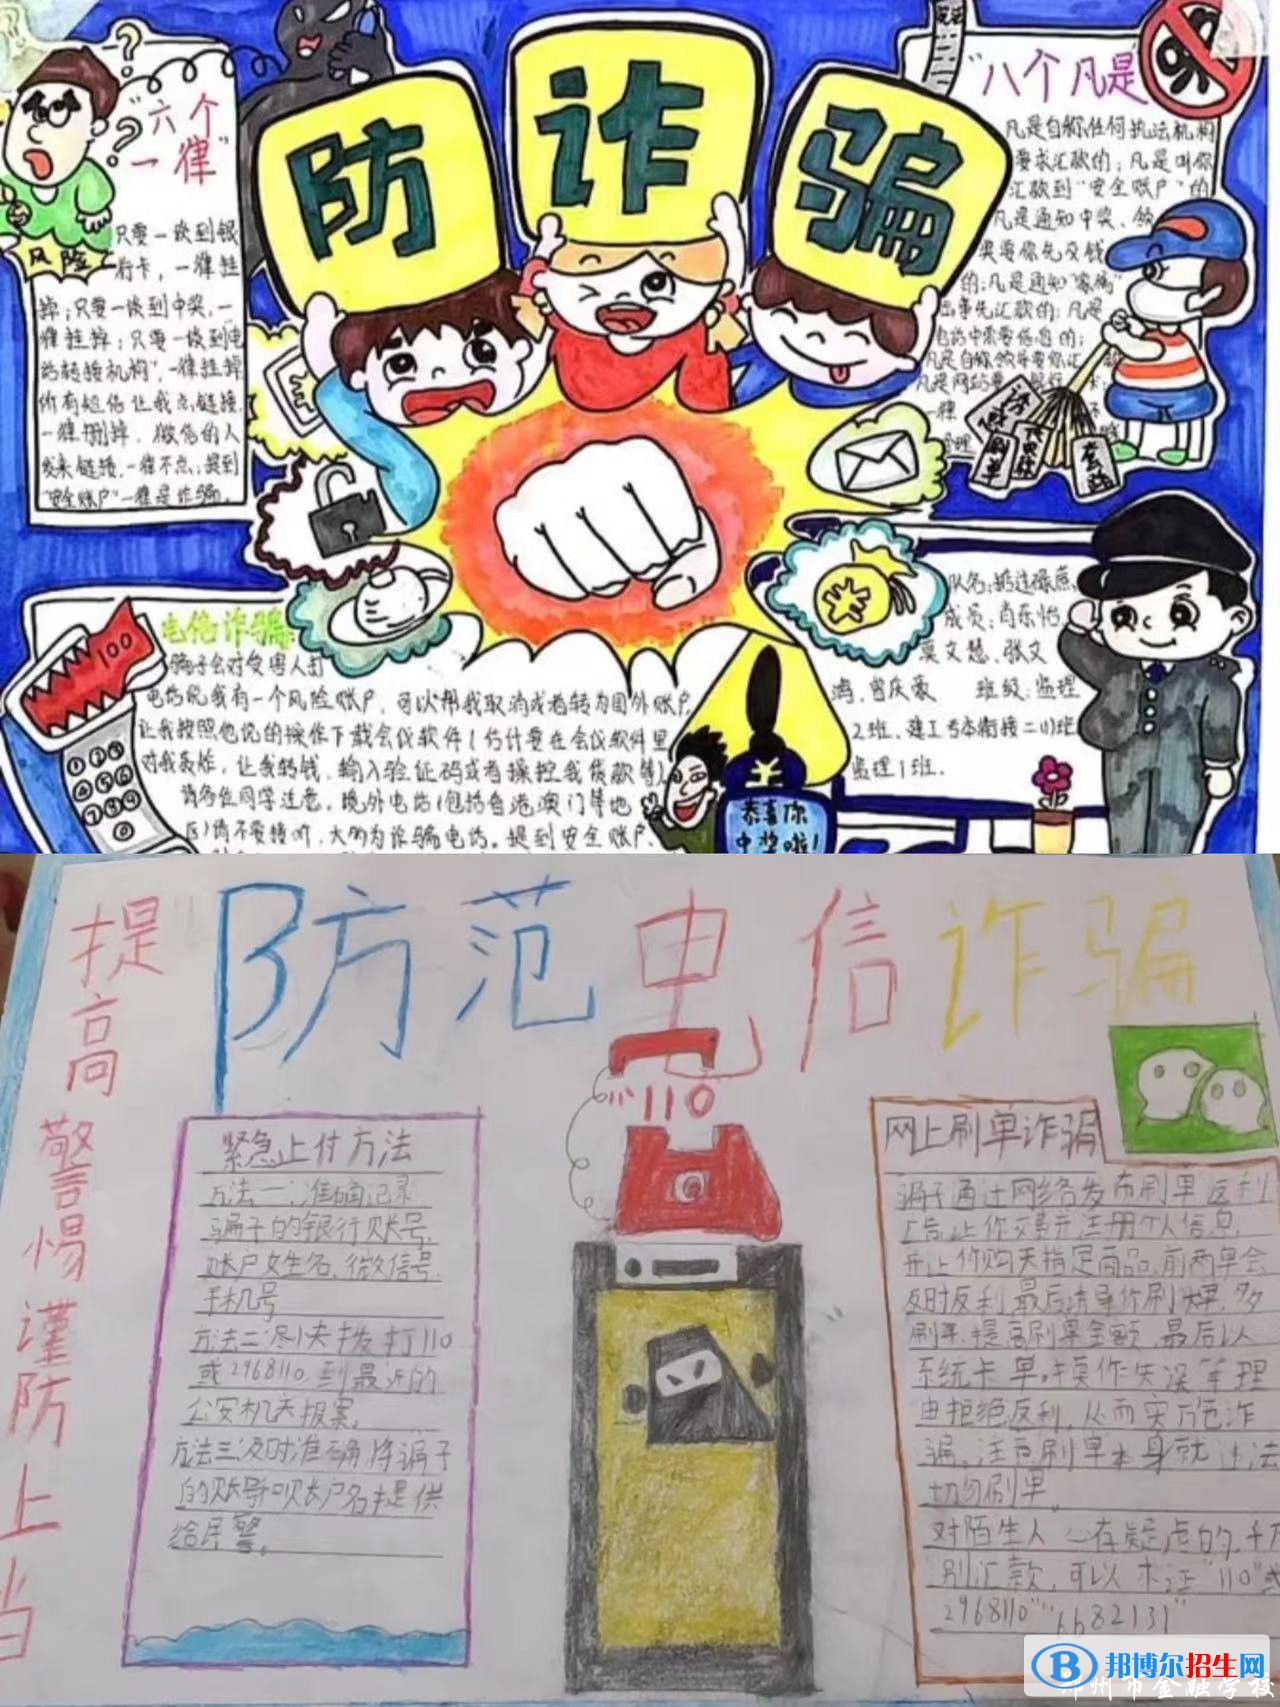 防诈骗
"六个
一律"
只要一谈到银
行卡，一律挂
掉；只要一谈到中奖，一
律挂掉；只要一谈到电
话转接机构"，一律挂掉
所有短信让我点链接，
一律删掉．微信的人
发来链接，一律不点；提到
"安全账户"一律是诈骗．
风险
"八个凡是
凡是自称任何执法机构
要求汇款的；凡是叫你
汇款到"安全账户"的
凡是通知中奖、领
奖要你先交钱
的；凡是通知"家属"
出事先汇款的；凡是
电话中需要信息的；
凡是自称领导要你汇
凡是网站要
一律
刷单
套路
100
电信诈骗
骗子会对受害人打
电话说我有一个风险账户，可以帮我取消或者转为国外账户，
让我按照他说的操作下载会议软件（估计要在会议软件里
对我轰炸，让我转钱，输入验证码或者操控我贷款等）
请各位同学注意，境外电话（包括香港澳门等地
区）请不要接听，大多为诈骗电话。提到安全账户、
恭喜你
中奖啦！
成员：肖乐怡
莫文慧、张文
鸿、曾庆豪 班级：监理
2班、建工专本衔接二(1)班
监理1班．
防范电信诈骗
提高警惕谨防上当
110
紧急止付方法
方法一：准确记录
骗子的银行账号，
账户姓名、微信号，
手机号
方法二：尽快拨打110
或2968110，到最近的
公安机关报案．
方法三：及时准确将骗子
的账号账户名提供
给民警。
网上刷单诈骗
骗子通过网络发布刷单返利
广告，让你交易并注册个人信息，
并让你购买指定商品，前两单会
及时返利，最后诱导你刷大单，多
刷单，提高刷单金额，最后以
系统卡单。操作失误等理
由拒绝返利，从而实施诈
骗。注意刷单本身就违法
切勿刷单。
对陌生人心存疑虑的，千万
别汇款，可以求证"110"或
"2968110""6682131"
邦博尔招生网
郑州市金融学校